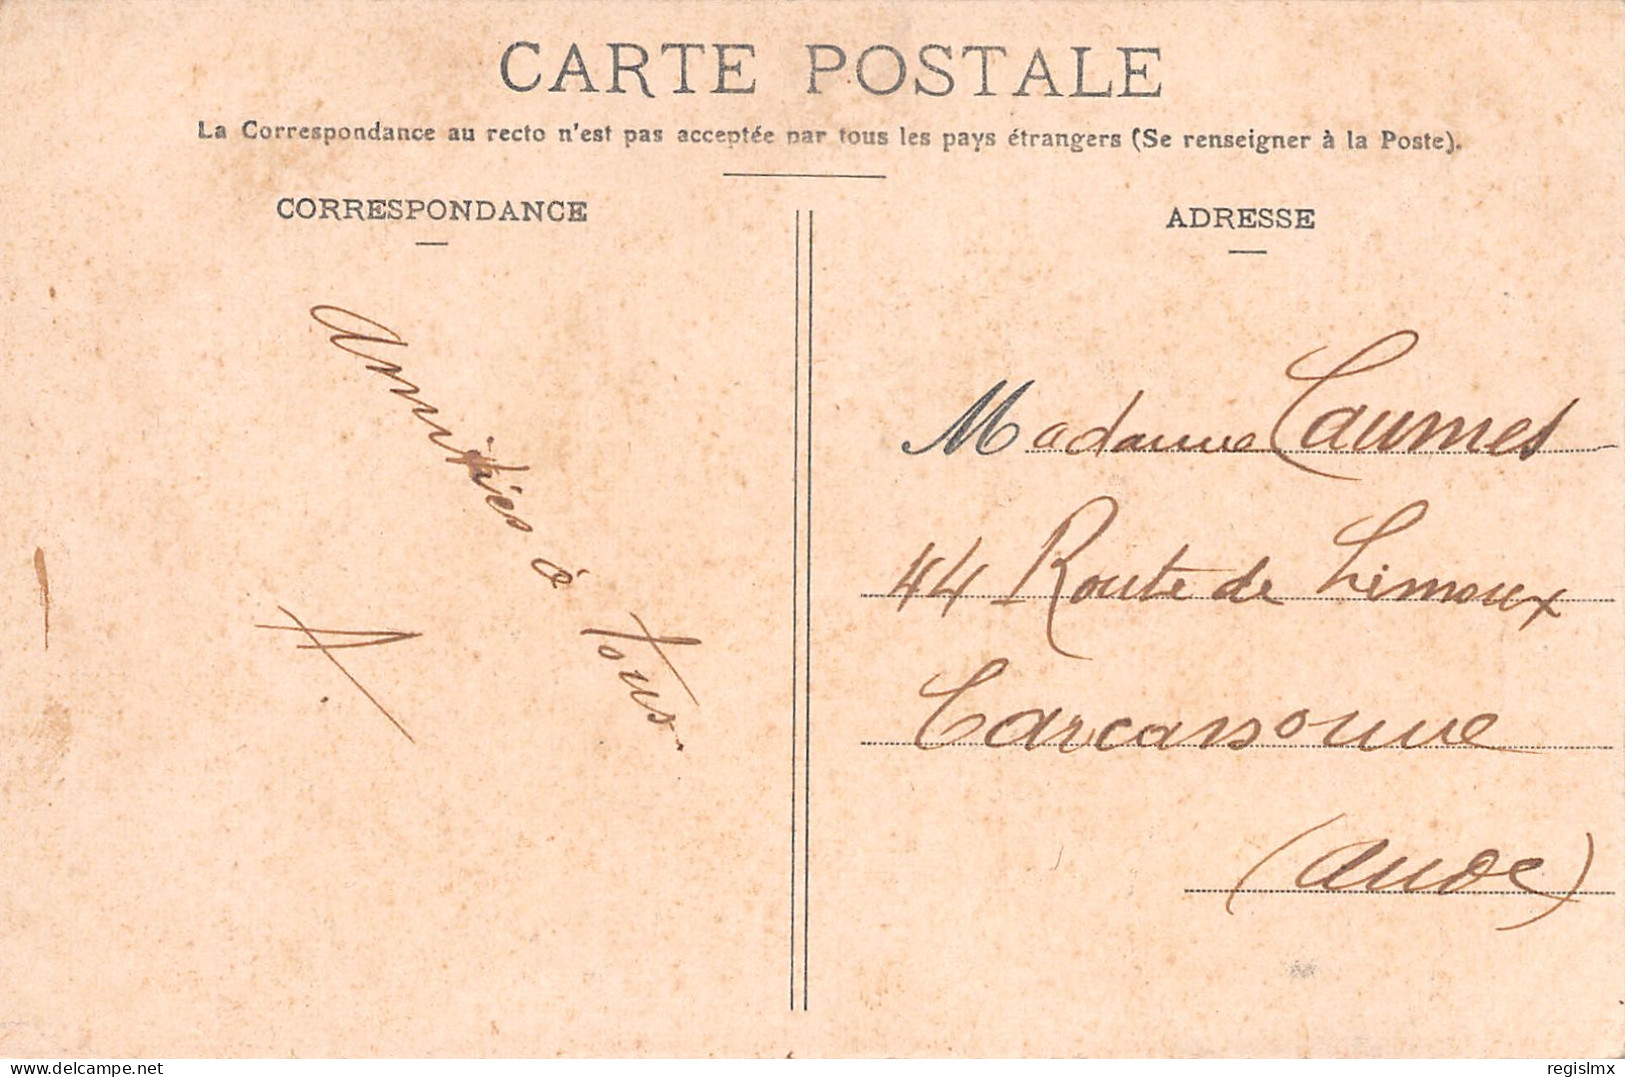 CARTE POSTALE
La Correspondance au recto n'est pas acceptée par tous les pays étrangers (Se renseigner à la Poste).
CORRESPONDANCE
Amitiés à tous.
ADRESSE
Madame Caumes
44 Route de Limoux
Carcassonne
(Aude)
delcampe.net
regislmx